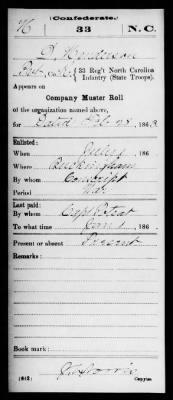 (Confederate.)
H 33 N.C.
D. Henderson
Pvt, Co. , 33 Reg't North Carolina
Infantry (State Troops).
Appears on
Company Muster Roll
of the organization named above,
for Dated Feb. 28, 186 3.
Enlisted:
When July , 186 .
Where Rockingham
By whom Conscript
Period War
Last paid:
By whom Capt Poteat
To what time Jan 1 , 186 .
Present or absent Present
Remarks:
Book mark:
(642)
Copyist.